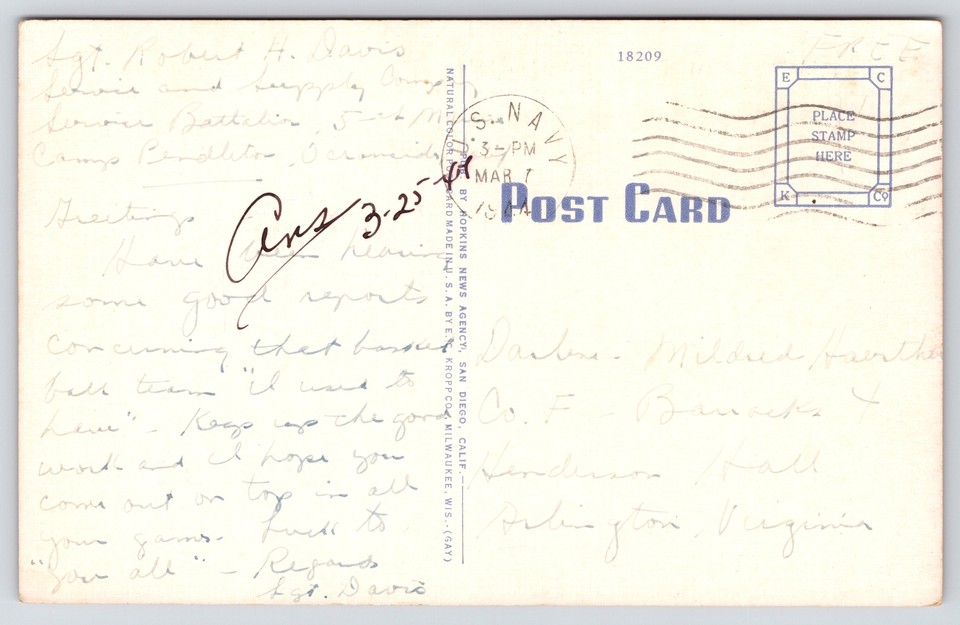 Sgt. Robert H. Davis
Service and Supply Company
Service Battalion, 5-th Marine
Camp Pendleton, Oceanside
Greetings
Have been hearing
some good reports
concerning that basket
ball team "I used to
have" - Keep up the good
work and I hope you
come out on top in all
your games. Luck to
"you all" - Regards
Sgt. Davis
Ans 3-25-44
NATURAL COLOR CARD MADE IN U.S.A. BY E.C. KROPP CO., MILWAUKEE, WIS.-(GAY)
BY HOPKINS NEWS AGENCY, SAN DIEGO, CALIF.
18209
FREE
U.S. NAVY
3-PM
MAR 7
1944
E C
PLACE
STAMP
HERE
K Co
POST CARD
Mildred
Co. F - Barracks 4
Henderson Hall
Arlington, Virginia